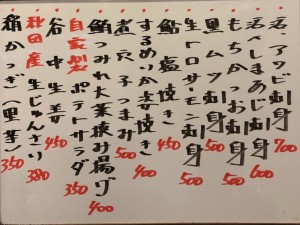 活アワビ刺身 700
活べしまあじ刺身 600
もちかつお刺身 500
黒ムツ刺身 500
生トロサーモン刺身 500
鮎塩焼き 450
するめいか壺焼き 400
煮穴子つまみ 500
鮪つみれ大葉挟み揚げ 400
自家製ポテトサラダ 350
谷中生姜 450
秋田産生じゅんさい 380
絹かつぎ(里芋) 350